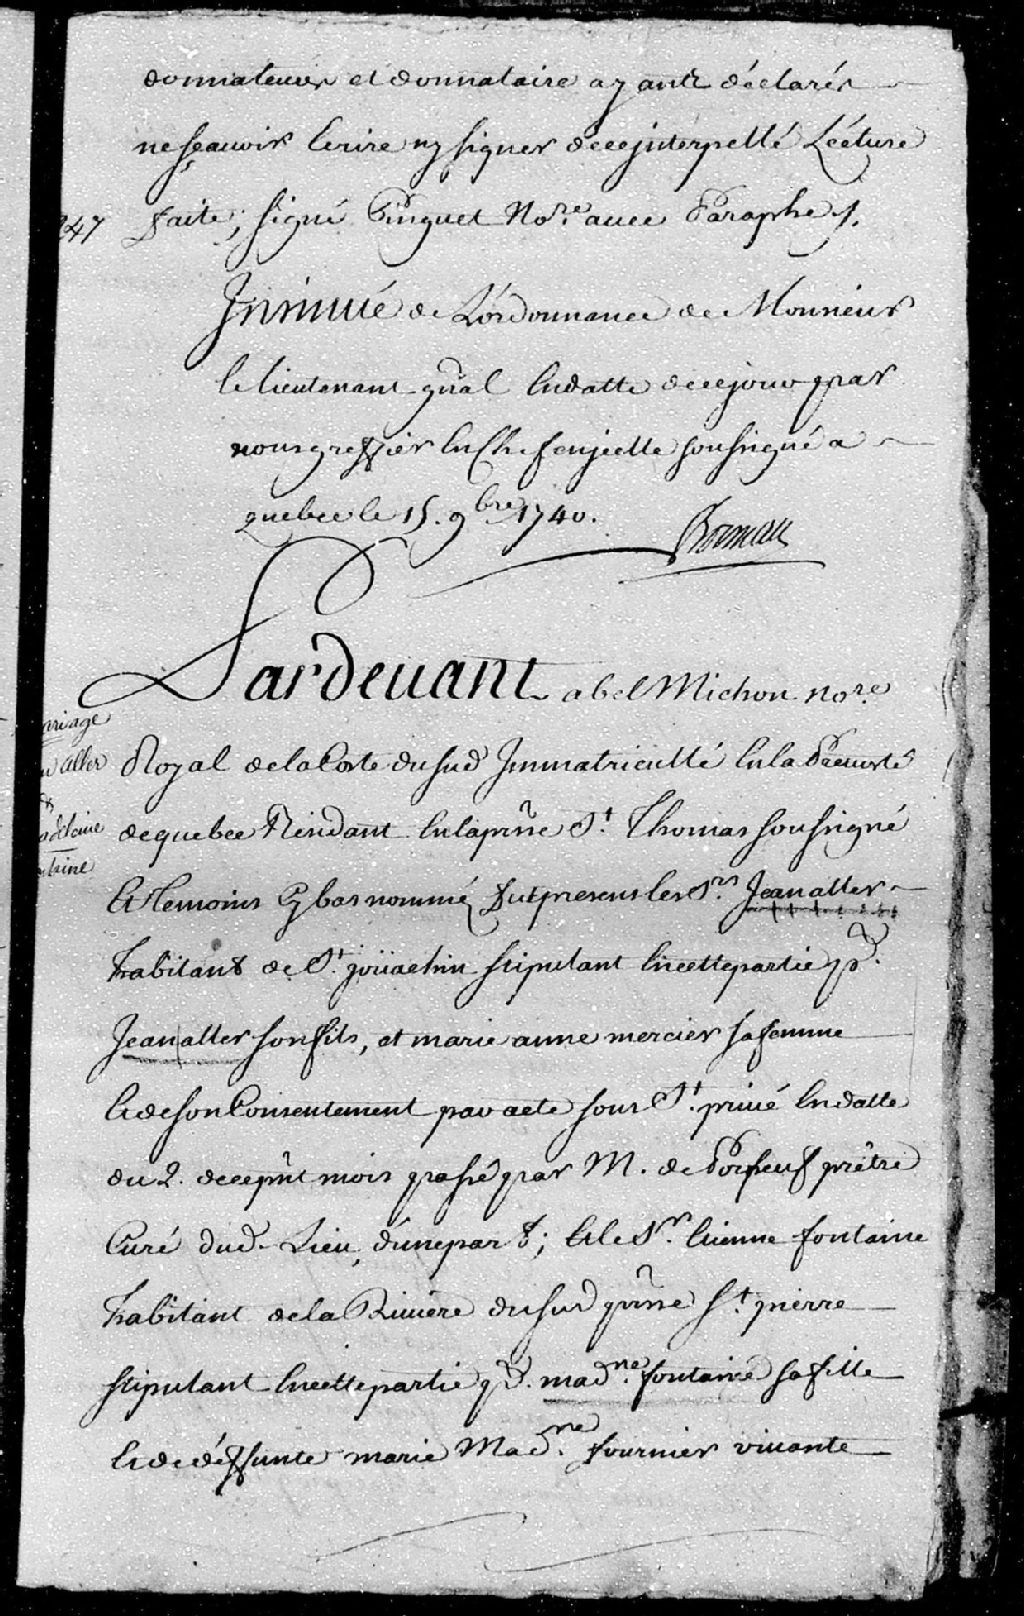 donnateurs et donnataire ayant déclarés
ne sçauoir Ecrire ny signer de ce jnterpellé Lecture
247 faite, signé Pinguet No.re auec Paraphe /.
Jnsinué de L'ordonnance de Monsieur
le lieutenant gnãl En datte de ce jour par
nous greffier En Chef en jcelle soussigné a
quebec le 15. 9bre 1740.
Boisseau
Pardeuant abel Michon no.re
mariage
alter
Royal de la Coste du sud Jmmatricullé En la Preuosté
&
madelaine
de quebec Residant En la p̃sse St. Thomas soussigné
fontaine
Et temoins Cy bas nommé fut presens les Srs. Jean alter
habitant de St. joüachin stipulant En cette partie pr.
Jean alter son fils, et marie anne mercier sa femme
Et de son Consentement par acte sous St. priué En datte
du 2. de ce pñt mois passé par M. de Porneuf prêtre
Curé dud. Lieu, d'une part; Et le Sr. Etienne fontaine
habitant de la Riuiere du sud p̃sse St. pierre
stipulant En cette partie pr. madne. fontaine sa fille
Et de déffunte marie Madne. fournier viuante